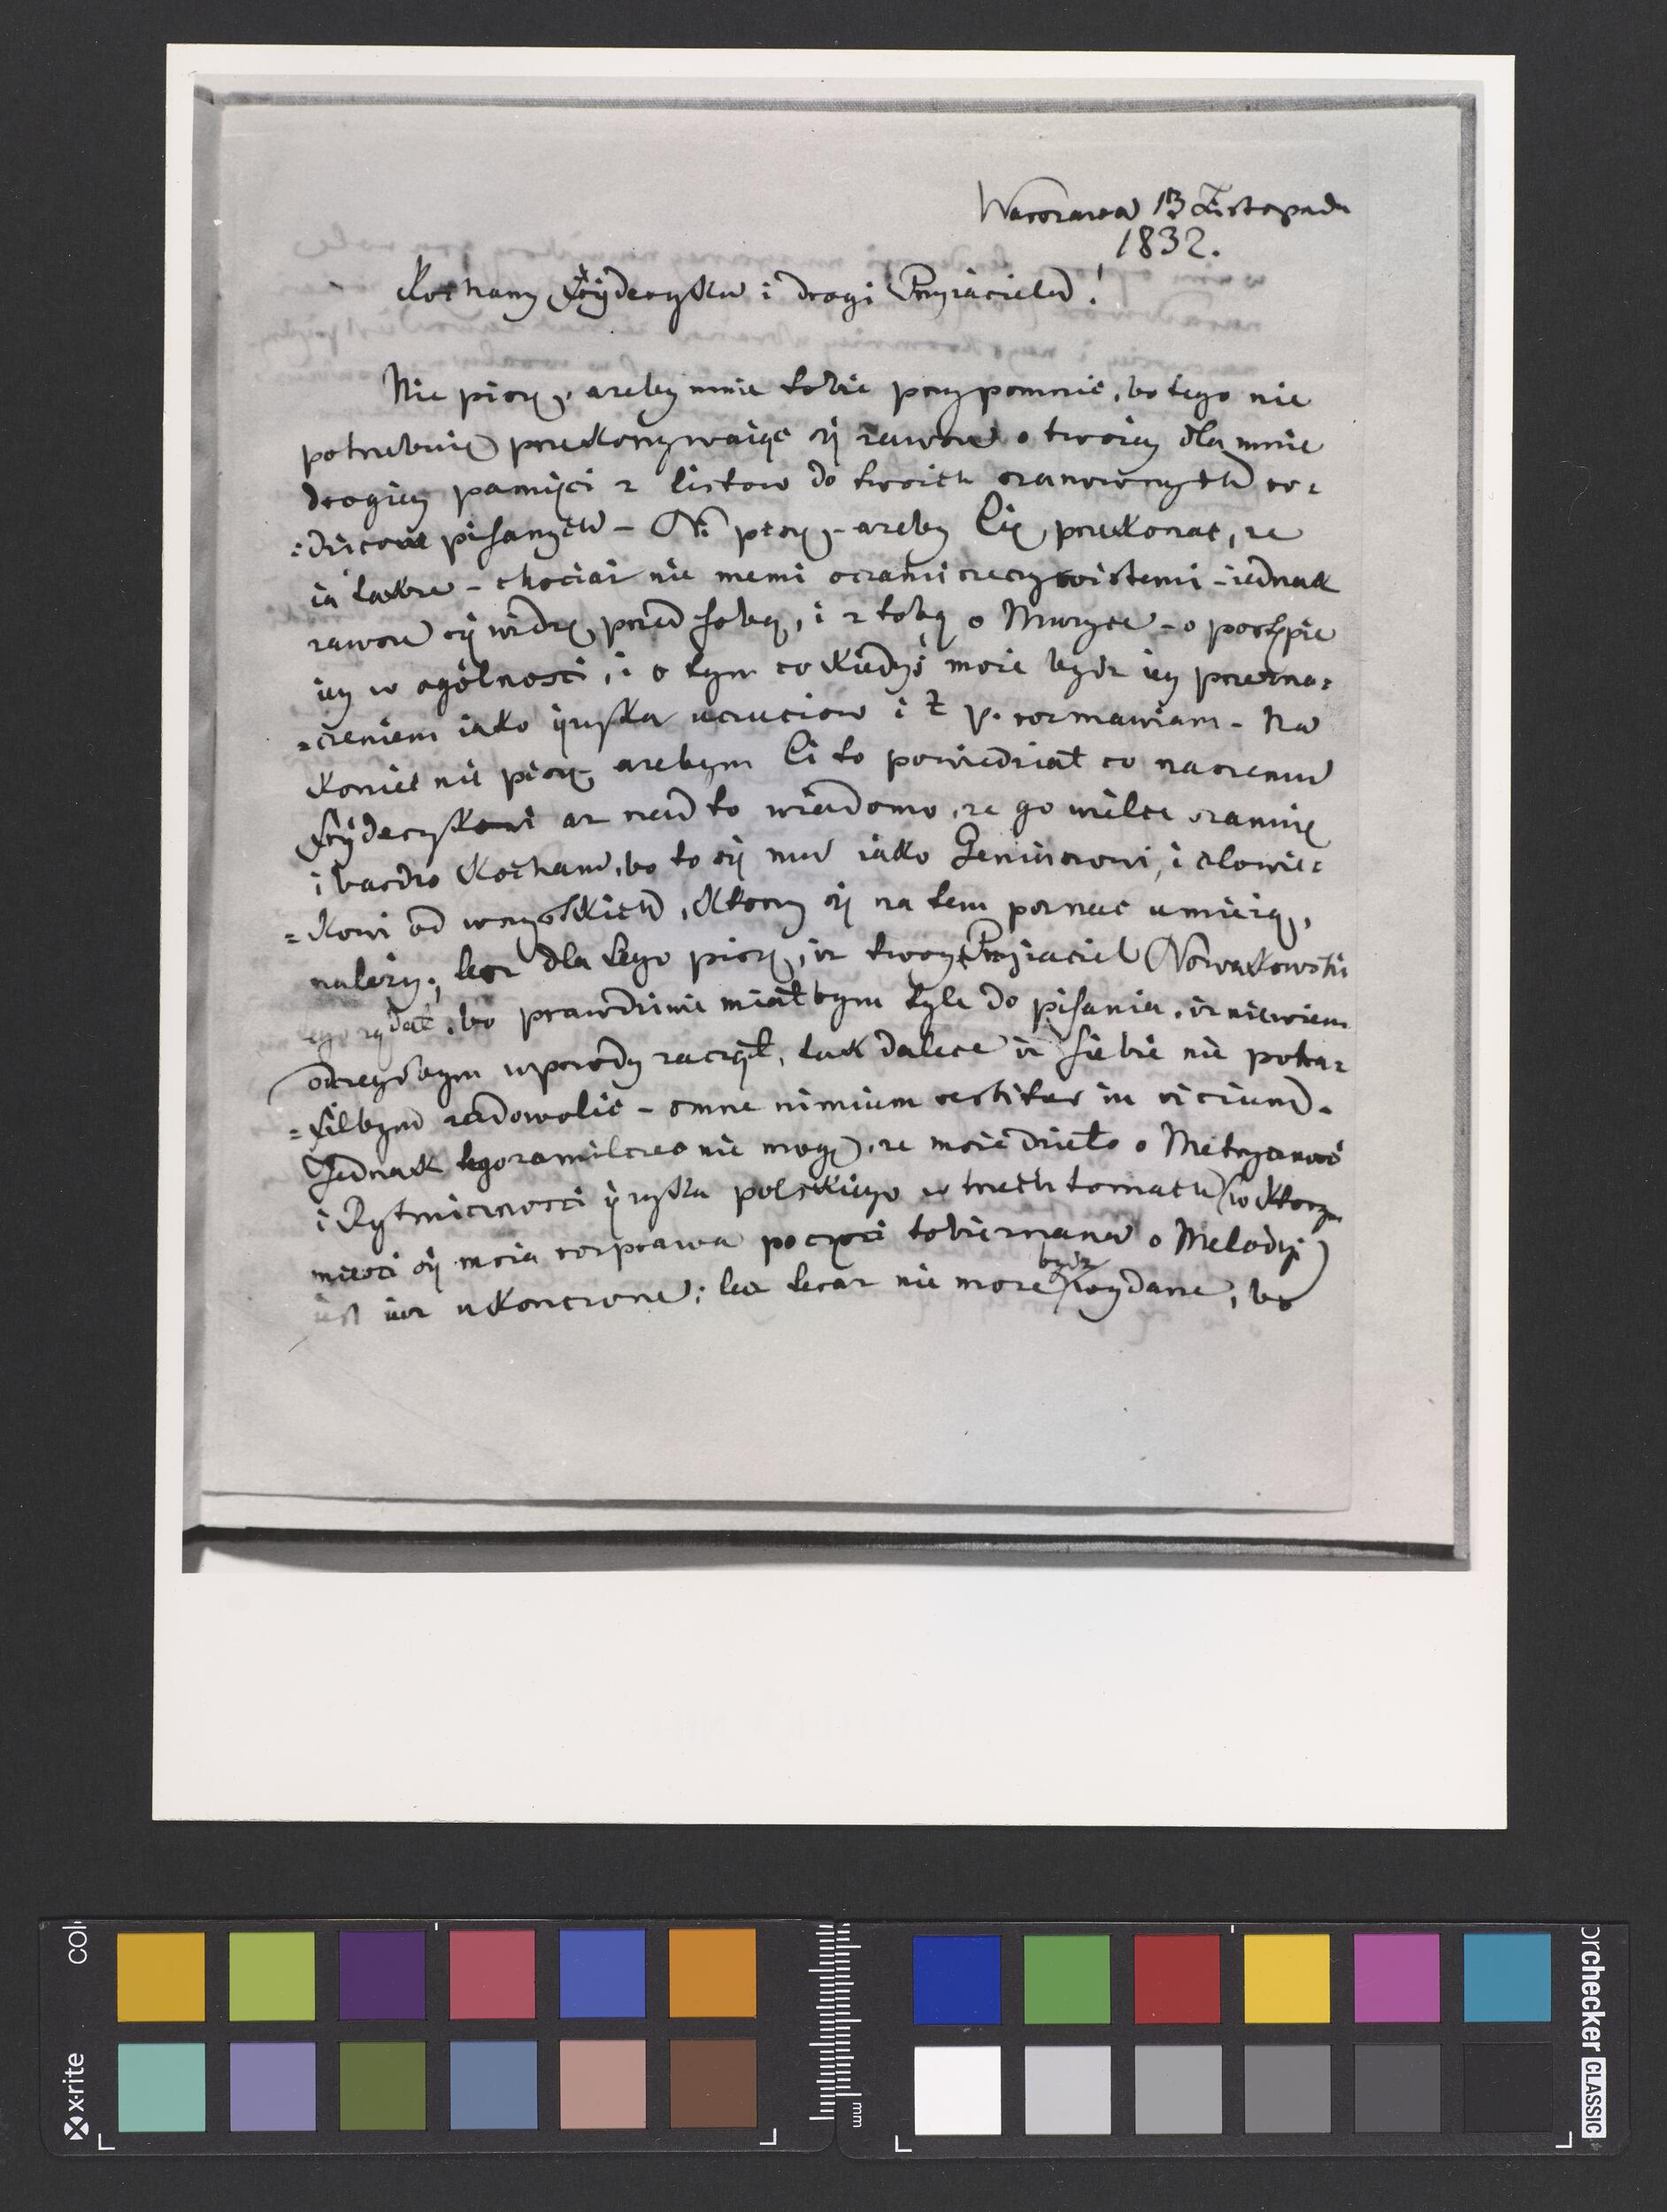 Warszawa 13 Listopada
1832.
Kochany Fryderyku i drogi Przyiacielu!
Nie piszę, azeby mnie tobie przypomnić, bo tego nie
potrzebuię przekonywaiąc się zawsze o twoiey dla mnie
drogiey pamięci z listow do twoich szanownych ro=
=dzicow pisanych – Nie piszę – azeby Cię przekonać, ze
ia także – chociaż nie memi oczami rzeczywistemi – iednak
zawsze cię widzę przed sobą, i z tobą o Muzyce – o postępie
iey w ogólnosci, i o tym co kiedyś moie bydz iey przezna=
=czeniem iako ięzyka uczuciow i t p. rozmawiam – Na
koniec nie piszę, azebym Ci to powiedział co naszemu
Fryderykowi az nad to wiadomo, ze go wielce szanuię
i bardzo kocham, bo to się mu iako Geniuszowi, i człowie=
=kowi od wszystkich, ktorzy się na tem poznać umieią,
należy; lecz dla tego piszę, iz twoy Przyiaciel Nowakowski
tego rządał, bo prawdziwie miałbym tyle do pisania, iz niewiem
odczegobym wprzody zaczął, tak dalece iz siebie nie potra=
=filbym zadowolić – omne nimium vertitur in vicium.
Jednak tego zamilczeć nie mogę, ze moie dzieło o Metryczności
i Rytmiczności ięzyka polskiego w trzech tomach (w ktorym
mieści się moia rozprawa poczęści tobie znana o Melodyi)
iest iuz ukonczone; lecz teraz nie moze bydz wydane, bo